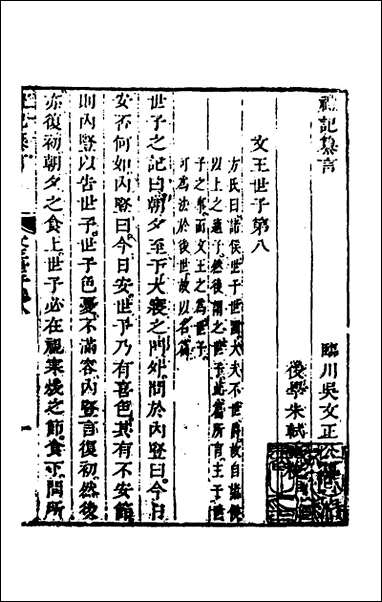 禮記纂言
臨川吳文正公
後學朱軾
文王世子第八
方氏曰諸侯世子世國大夫不世爵故自諸侯
以上之適子然後謂之世子此篇所言主于世
子之事而文王之爲世子
可爲法於後世故以名篇
世子之記曰朝夕至于大寢之門外問於內豎曰今日
安否何如內豎曰今日安世子乃有喜色其有不安節
則內豎以告世子世子色憂不滿容內豎言復初然後
亦復初朝夕之食上世子必在視寒煖之節食下問所